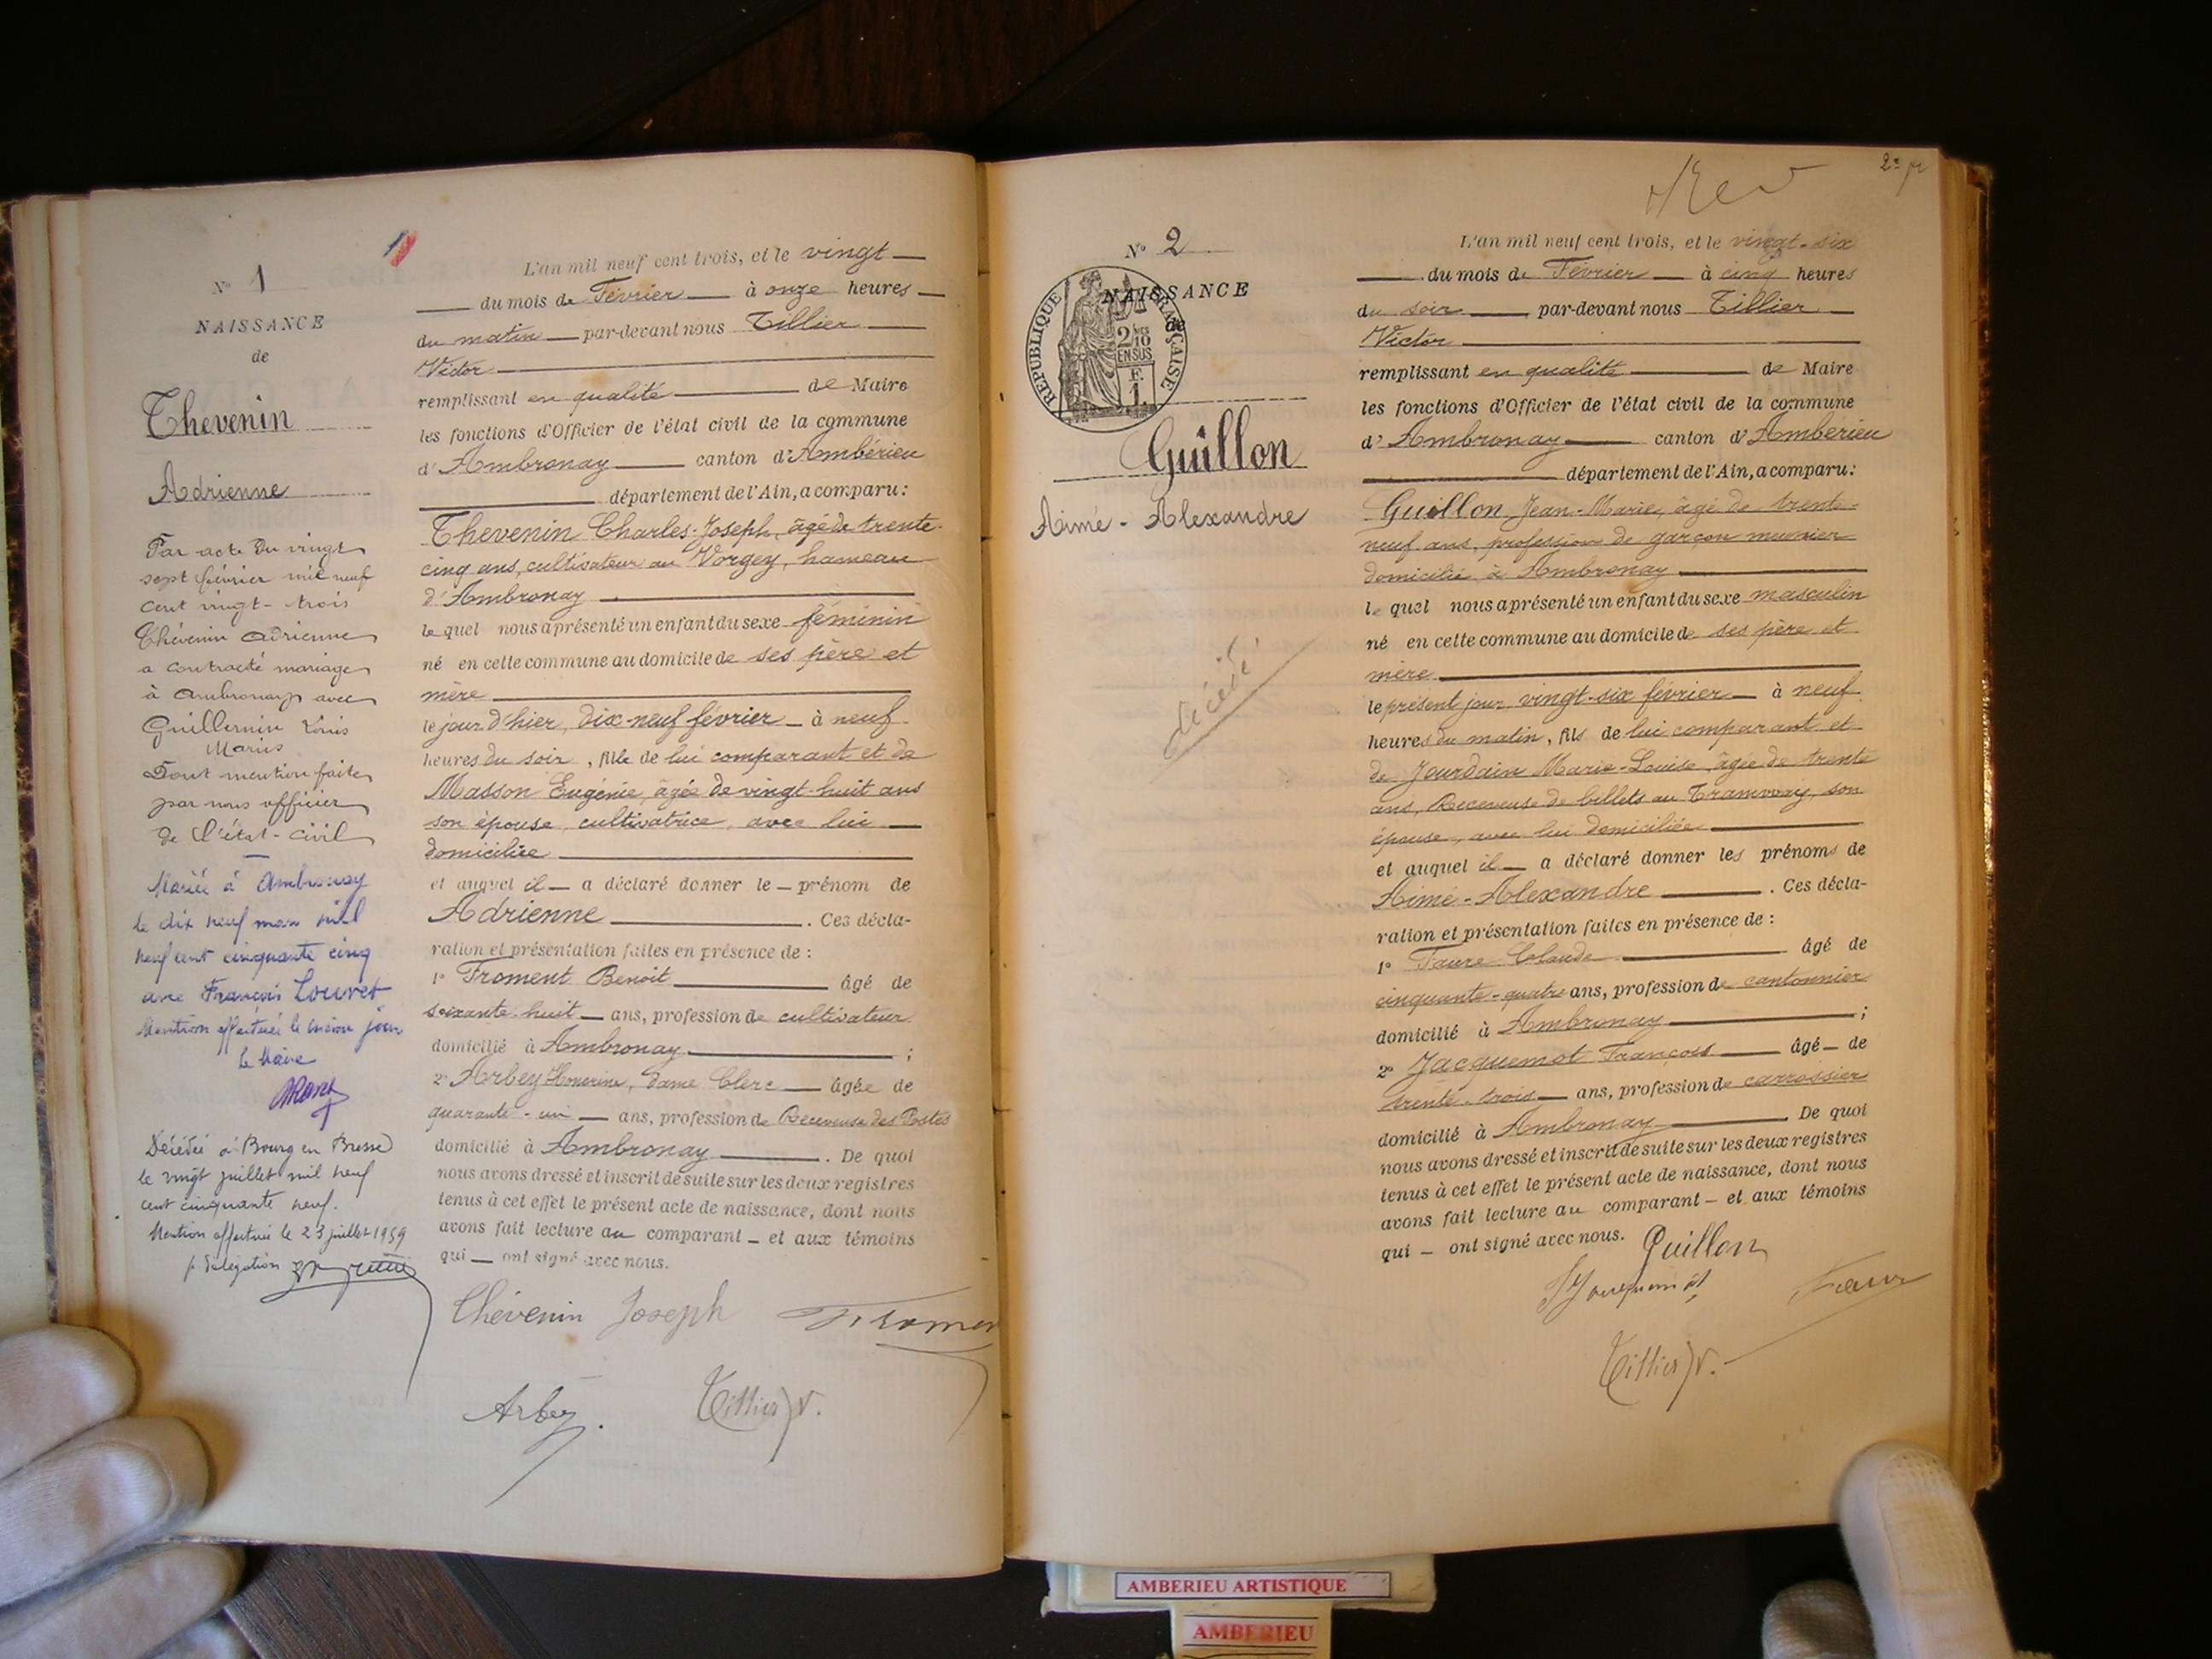 N° 1
NAISSANCE
de
Thevenin
Adrienne
Par acte du vingt
sept février mil neuf
cent vingt-trois
Thévenin Adrienne
a contracté mariage
à Ambronay avec
Guillermin Louis
Marius
Dont mention faite
par nous officier
de l'état-civil
Mariée à Ambronay
le dix neuf mars mil
neuf cent cinquante cinq
avec François Louvet
Mention effectuée le même jour
le Maire
Décédée à Bourg en Bresse
le vingt juillet mil neuf
cent cinquante neuf.
Mention effectuée le 23 juillet 1959
p. délégation
L'an mil neuf cent trois, et le vingt
du mois de Février à onze heures
du matin par-devant nous Tillier
Victor
remplissant en qualité de Maire
les fonctions d'Officier de l'état civil de la commune
d'Ambronay canton d'Ambérieu
département de l'Ain, a comparu:
Thevenin Charles-Joseph, âgé de trente-
cinq ans, cultivateur au Vorgey, hameau
d'Ambronay
lequel nous a présenté un enfant du sexe féminin
né en cette commune au domicile de ses père et
mère
le jour d'hier, dix-neuf février à neuf
heures du soir, fille de lui comparant et de
Masson Eugénie, âgée de vingt-huit ans
son épouse, cultivatrice, avec lui
domiciliée
et auquel il a déclaré donner le prénom de
Adrienne. Ces décla-
ration et présentation faites en présence de :
1° Froment Benoit âgé de
soixante-huit ans, profession de cultivateur
domicilié à Ambronay ;
2° Arbey Honorine, dame Clerc âgée de
quarante-un ans, profession de Receveuse des Postes
domicilié à Ambronay. De quoi
nous avons dressé et inscrit de suite sur les deux registres
tenus à cet effet le présent acte de naissance, dont nous
avons fait lecture au comparant et aux témoins
qui ont signé avec nous.
Thévenin Joseph Froment
Arbey. Tillier V.
2e
N° 2
NAISSANCE
de
RÉPUBLIQUE FRANÇAISE
2/10
EN SUS
F.
1.
Guillon
Aimé-Alexandre
décédé
L'an mil neuf cent trois, et le vingt-six
du mois de Février à cinq heures
du soir par-devant nous Tillier
Victor
remplissant en qualité de Maire
les fonctions d'Officier de l'état civil de la commune
d'Ambronay canton d'Ambérieu
département de l'Ain, a comparu:
Guillon Jean-Marie, âgé de trente-
neuf ans, profession de garçon meunier
domicilié à Ambronay
lequel nous a présenté un enfant du sexe masculin
né en cette commune au domicile de ses père et
mère
le présent jour vingt-six février à neuf
heures du matin, fils de lui comparant et
de Jourdain Marie-Louise, âgée de trente
ans, Receveuse de billets au Tramway, son
épouse, avec lui domiciliée
et auquel il a déclaré donner les prénoms de
Aimé-Alexandre. Ces décla-
ration et présentation faites en présence de :
1° Faure Claude âgé de
cinquante-quatre ans, profession de cantonnier
domicilié à Ambronay ;
2° Jacquemot François âgé de
trente-trois ans, profession de carrossier
domicilié à Ambronay. De quoi
nous avons dressé et inscrit de suite sur les deux registres
tenus à cet effet le présent acte de naissance, dont nous
avons fait lecture au comparant et aux témoins
qui ont signé avec nous. Guillon
Jacquemot Faure
Tillier V.
AMBERIEU ARTISTIQUE
AMBERIEU